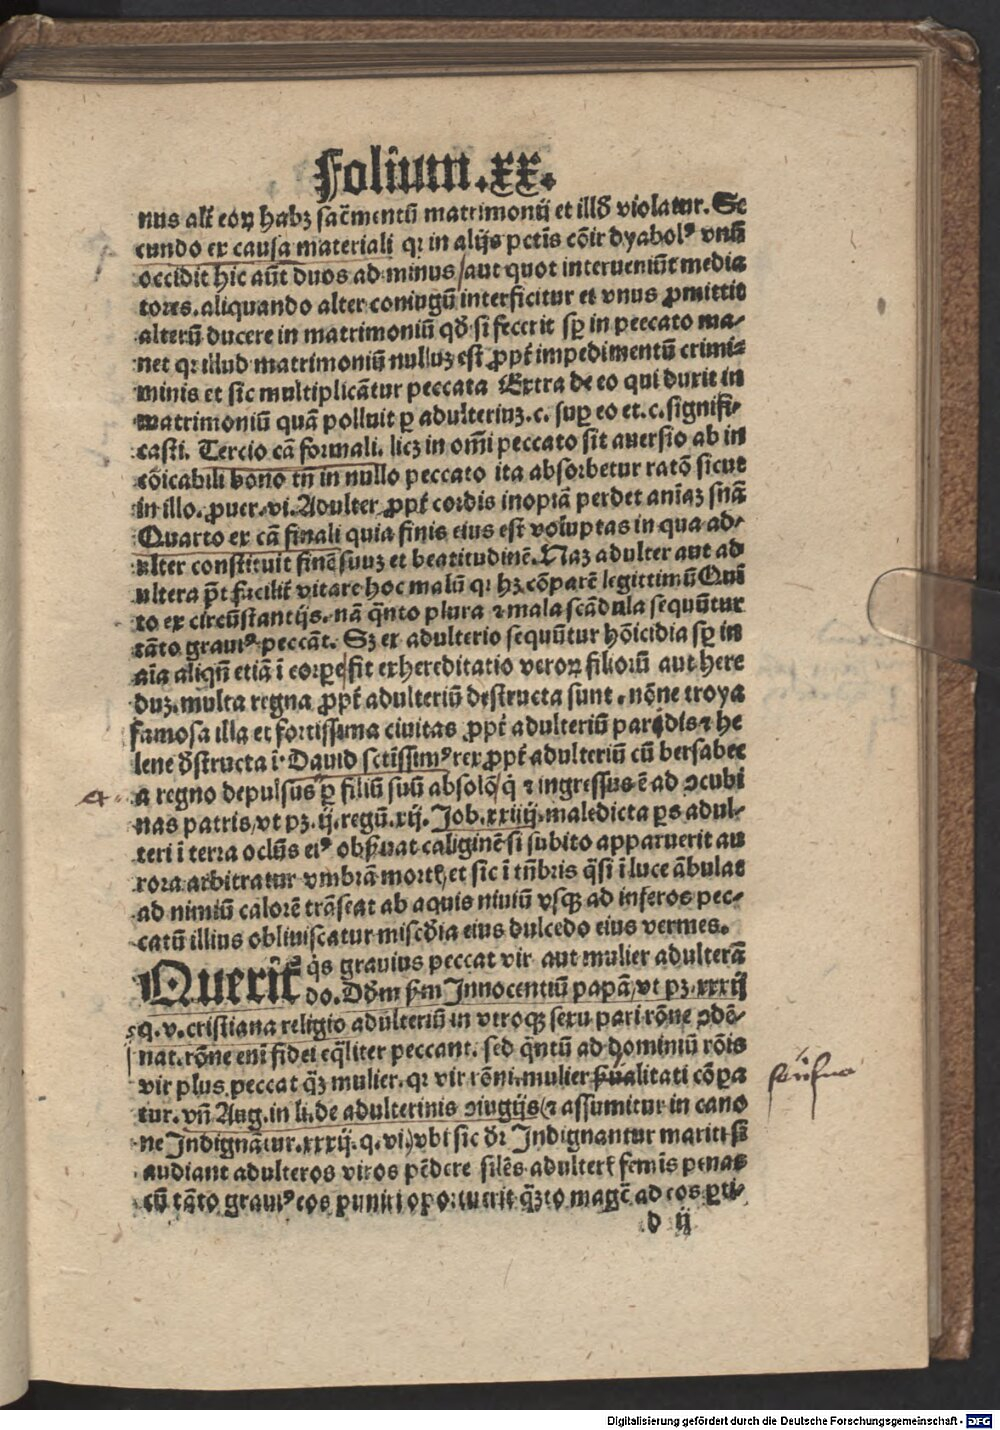 Folium.xx.
nus alt̃ eoꝝ habꝫ sac̃mentũ matrimonij et illđ violatur. Se
cundo ex causa materiali qꝛ in alijs pctĩs cõir dyabolꝰ vnũ
occidit hic aũt duos ad minus/aut quot interueniũt media
tores. aliquando alter coniugũ interficitur et vnus ꝓmittit
alterũ ducere in matrimoniũ qđ si fecerit sꝑ in peccato ma⸗
net qꝛ illud matrimoniũ nulluꝫ est ꝓpt̃ impedimentũ crimi⸗
minis et sic multiplicãtur peccata Extra de eo qui duxit in
matrimoniũ quã polluit ꝑ adulteriuꝫ.c. suꝑ eo et.c.signifi⸗
casti. Tercio cã formali. licꝫ in om̃i peccato sit auersio ab in
cõicabili bono tñ in nullo peccato ita absorbetur ratõ sicut
in illo. ꝓuer.vi. Adulter ꝓpt̃ cordis inopiã perdet aniaꝫ suã
Quarto ex cã finali quia finis eius est voluptas in qua ad⸗
ulter constituit finẽ suuꝫ et beatitudinẽ. Naꝫ adulter aut ad
ultera p̃t facilit̃ vitare hoc malũ qꝛ hꝫ cõparẽ legittimũ Quĩ
to ex circũstantijs. nã q̃nto plura ⁊ mala scãdula sequũtur
tãto grauiꝰ peccãt. Sꝫ ex adulterio sequũtur hõicidia sꝑ in
aĩa aliqñ etiã ĩ corꝑe/fit exhereditatio veroꝝ filiorũ aut here
duꝫ. multa regna ꝓpt̃ adulteriũ destructa sunt. nõne troya
famosa illa et fortissima ciuitas ꝓpt̃ adulteriũ paridis ⁊ he
lene đstructa ĩ. Dauid sctissimꝰ rex ꝓpt̃ adulteriũ cũ bersabee
a regno depulsus ꝑ filiũ suũ absolõ/q̇ ⁊ ingressus ẽ ad ɔcubi
nas patris/vt pꝫ.ij.regũ.xij. Job.xxiiij.maledicta ꝑs adul⸗
teri ĩ terra oclũs eiꝰ obẜuat caliginẽ si subito apparuerit au
rora arbitratur vmbrã mortꝭ/et sic ĩ tñbris q̃si ĩ luce ãbulat
ad nimiũ calorẽ trãseat ab aquis niuiũ vsqꝫ ad inferos pec⸗
catũ illius obliuiscatur misc̃dia eius dulcedo eius vermes.
Querit̃ q̇s grauius peccat vir aut mulier adulterã
do. Dđm ẜm Innocentiũ papã/vt pꝫ.xxxij
q.v.cristiana religio adulteriũ in vtroqꝫ sexu pari rõne ɔdẽ⸗
nat. rõne eni fidei eq̃liter peccant. sed q̃ntũ ad dominiũ rõis
vir plus peccat q̃ꝫ mulier. qꝛ vir rõni. mulier ẜũalitati cõꝑa
tur. vñ Aug. in li. de adulterinis ɔiugijs (⁊ assumitur in cano
ne Indignãtur.xxxij.q.vi.) vbi sic đr Indignantur mariti si
audiant adulteros viros pẽdere silẽs adulterꝭ femĩs penas
cũ tãto grauiꝰ eos puniri oportuerit q̃ꝫto magꝭ ad eos ꝑti⸗
d ij
Digitalisierung gefördert durch die Deutsche Forschungsgemeinschaft - DFG